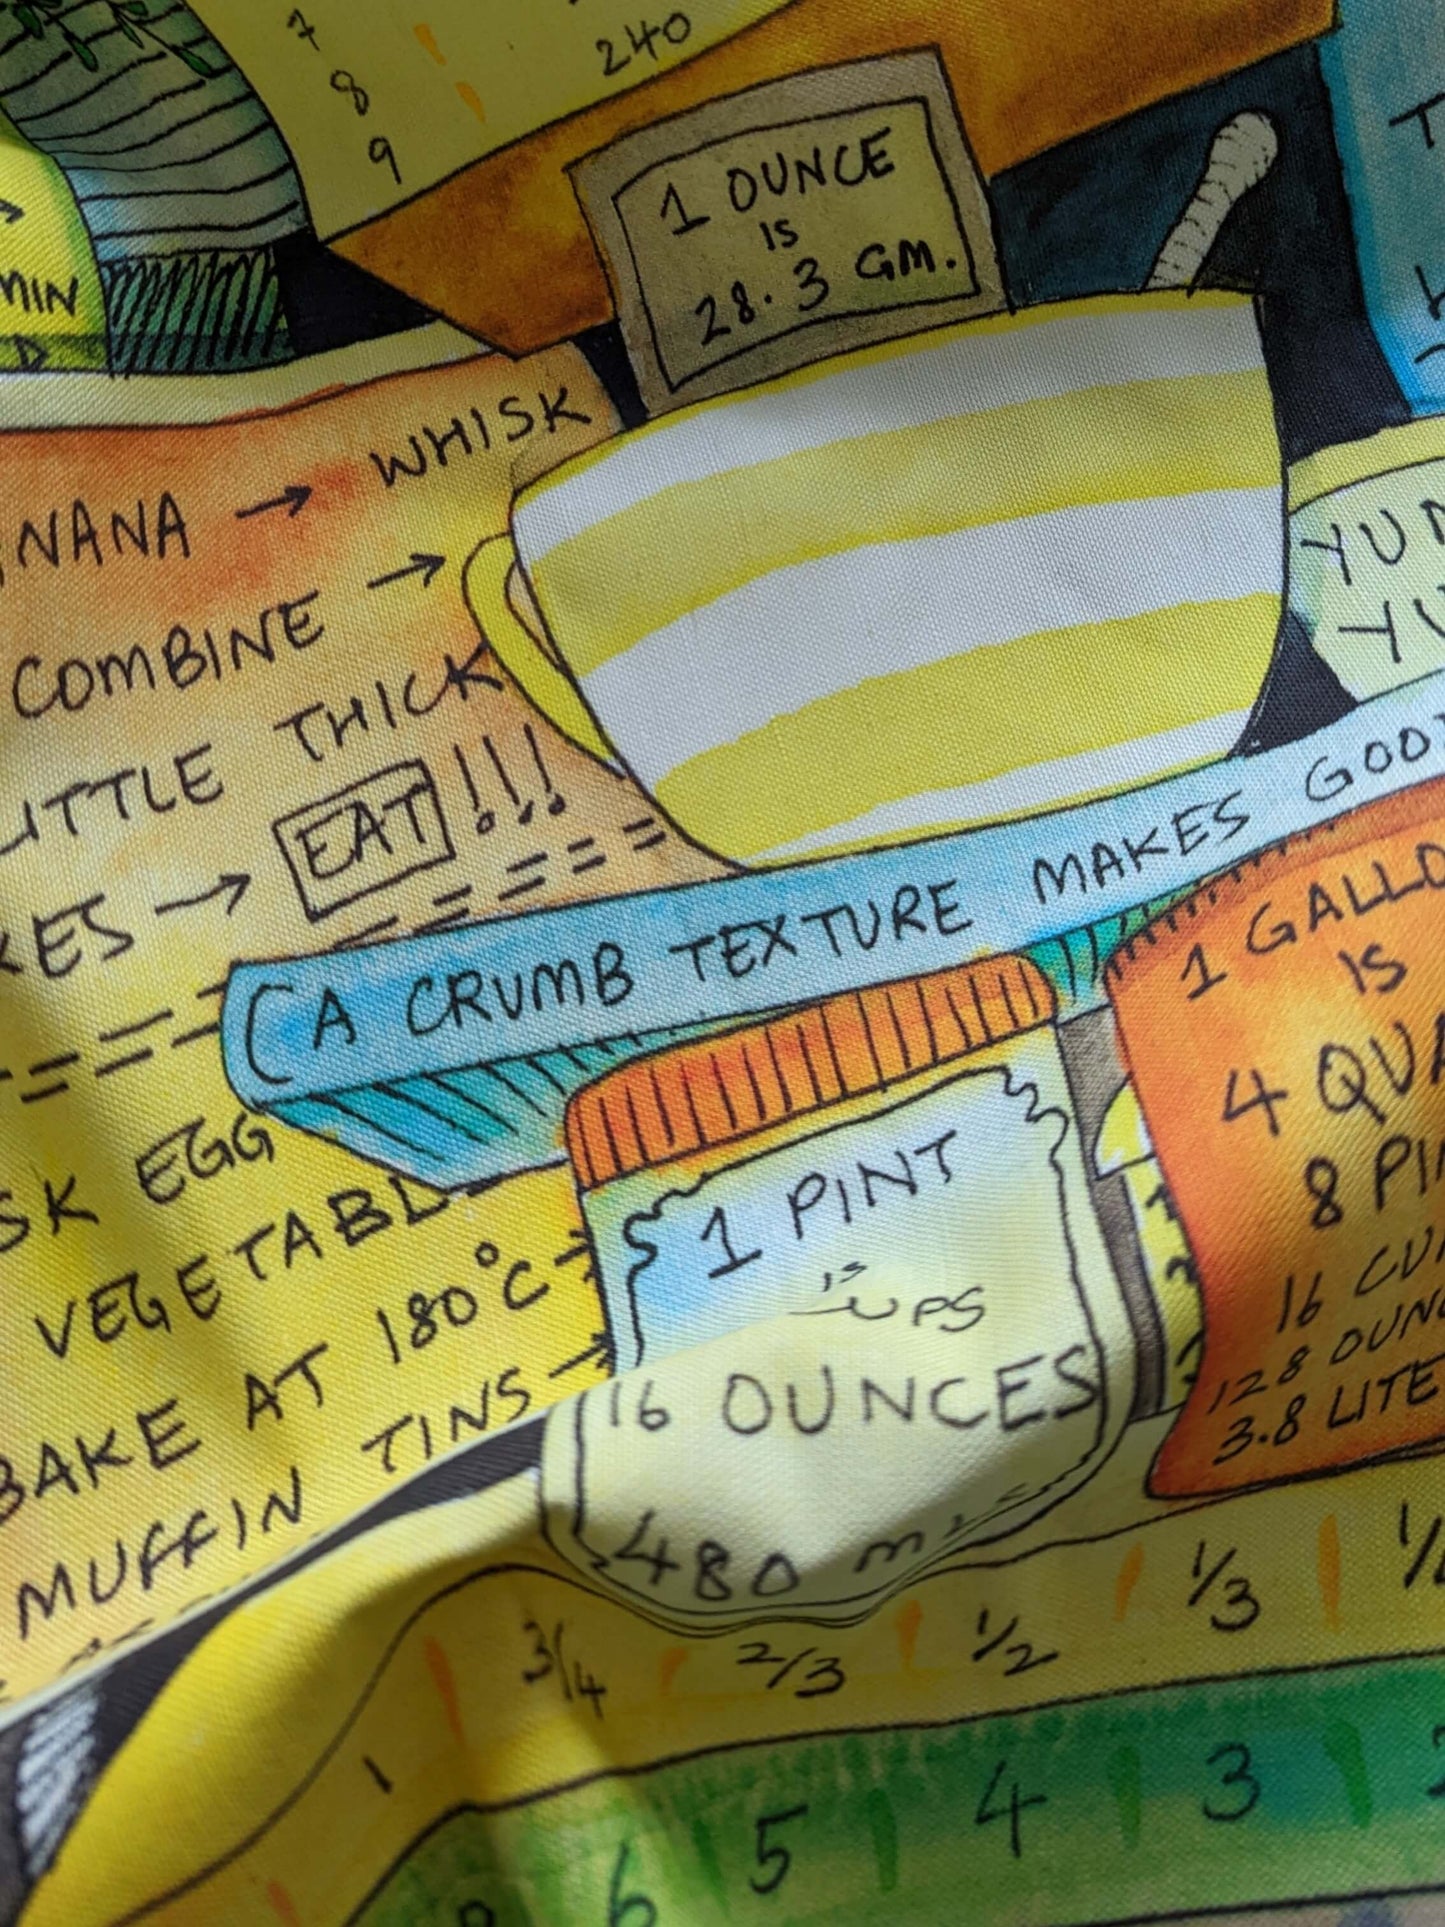 7
8
9
240
1 OUNCE
IS
28.3 GM.
MIN
NANA → WHISK
COMBINE →
LITTLE THICK
KES → EAT !!!
= = = = =
(A CRUMB TEXTURE MAKES GOO
= = = =
SK EGG
VEGETABL
BAKE AT 180°C →
MUFFIN TINS →
1 PINT
IS
UPS
16 OUNCES
480 mL
1 GALLO
IS
4 QUA
8 PIN
16 CUP
128 OUNC
3.8 LITE
YU
YU
1 3/4 2/3 1/2 1/3
6 5 4 3